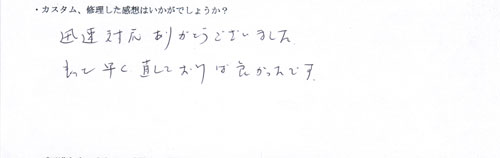 ・カスタム、修理した感想はいかがでしょうか？
迅速対応ありがとうございました
もっと早く直しておけば良かったです。